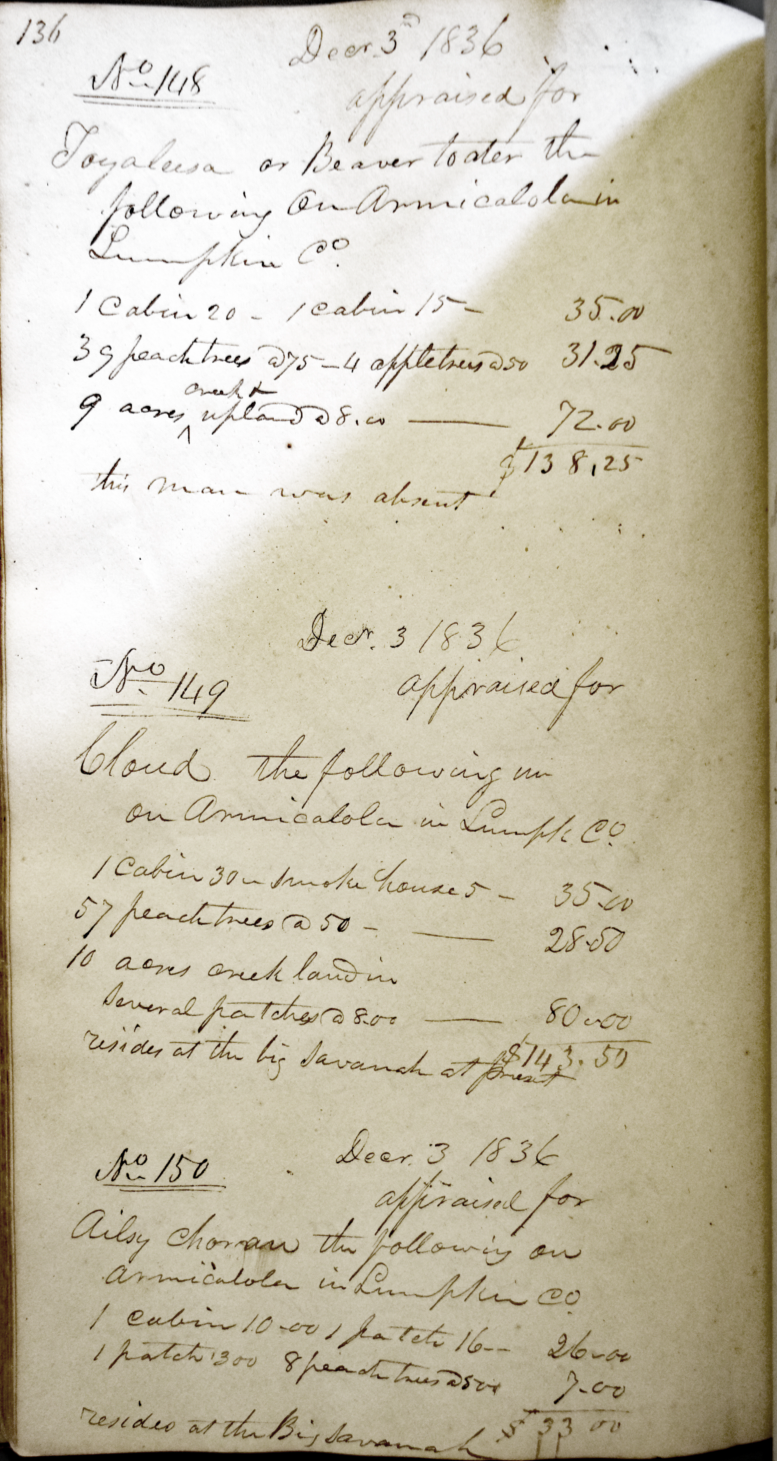 136
Decr. 3rd 1836
No 148
appraised for
Toyaleesa or Beaver toater the
following On Armicalola in
Lumpkin Co.
1 Cabin 20 - 1 cabin 15 - 35.00
39 peach trees @75 - 4 appletrees @50 31.25
creek &
9 acres ^ upland @8.00 — 72.00
$138,25
this man was absent
Decr. 3 1836
No 149
appraised for
Cloud the following im
on Armicalola in Lumpk Co.
1 Cabin 30 - smoke house 5 - 35.00
57 peach trees @ 50 - — 28.50
10 acres creek land in
several patches @8.00 — 80.00
$143.50
resides at the big Savanah at present
Decr. 3 1836
No 150
appraised for
Ailsy the following on
Armicalola in Lumpkin Co
1 cabin 10-00 1 patch 16-- 26-00
1 patch 300 8 peach trees @ 7-00
$33 00
resides at the Big Savannah